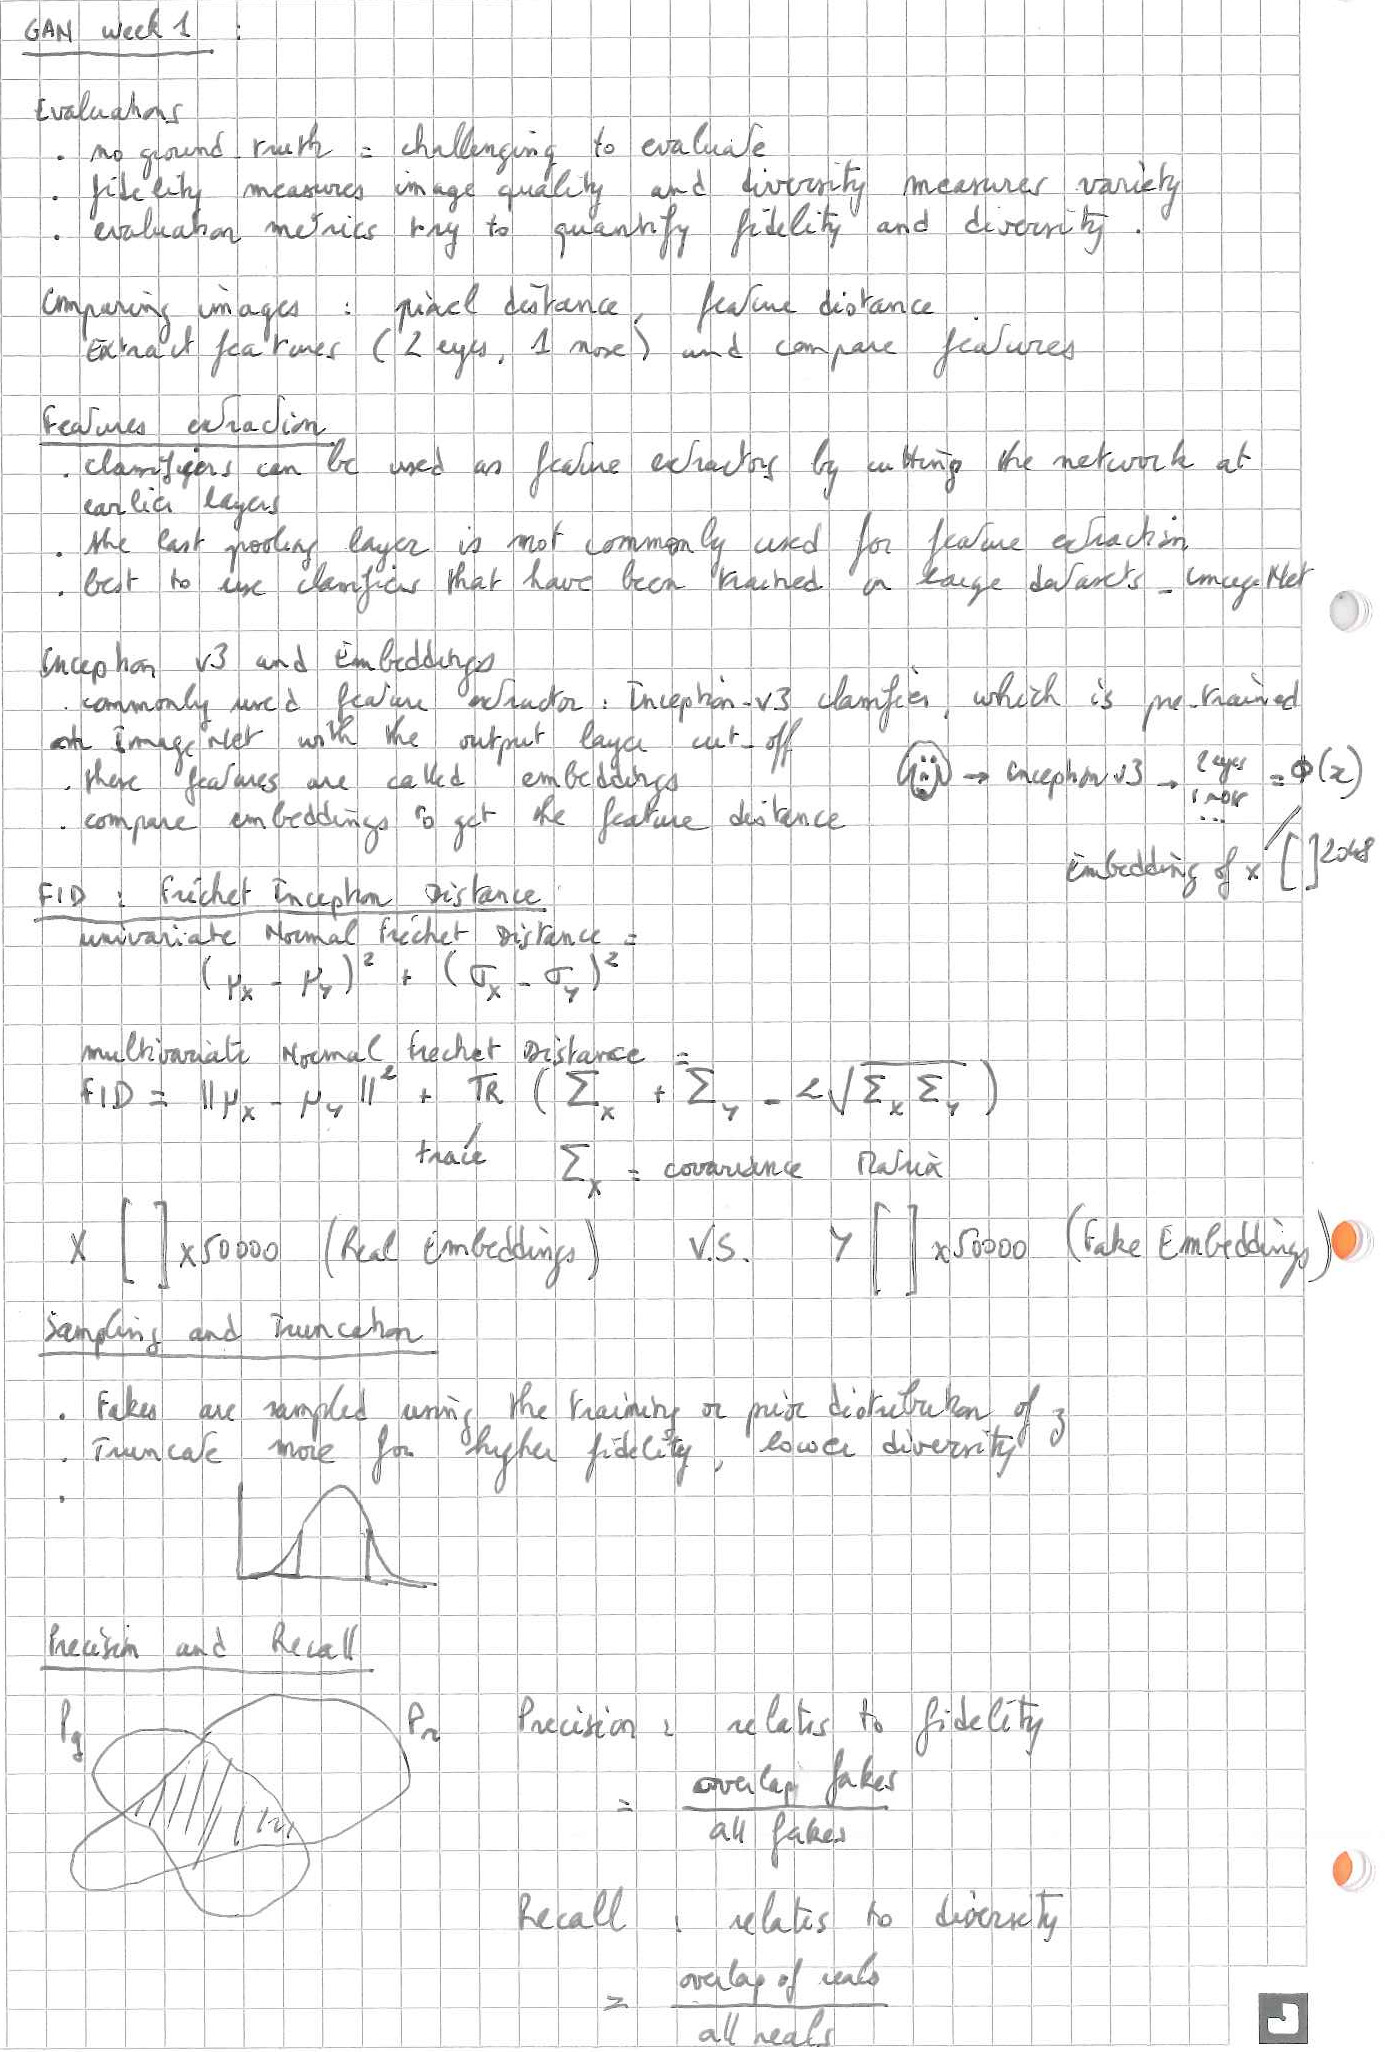 GAN week 1 :
Evaluations
. no ground truth = challenging to evaluate
. fidelity measures image quality and diversity measures variety
. evaluation metrics try to quantify fidelity and diversity.
Comparing images : pixel distance, feature distance.
Extract features (2 eyes, 1 nose) and compare features
Features extraction
. classifiers can be used as feature extractors by cutting the network at
earlier layers
. the last pooling layer is not commonly used for feature extraction
. best to use classifiers that have been trained on large datasets - ImageNet
Inception v3 and Embeddings
. commonly used feature extractor : Inception-v3 classifier, which is pre-trained
on ImageNet with the output layer cut-off
. these features are called embeddings
→ inception v3 → 2 eyes 1 nose ... = Φ(x)
. compare embeddings to get the feature distance
Embedding of x [ ] 2048
FID : Fréchet Inception Distance
univariate Normal Fréchet Distance =
(μx - μy)² + (σx - σy)²
multivariate Normal Frechet Distance =
FID = ||μx - μy||² + TR (Σx + Σy - 2√ΣxΣy)
trace Σx = covariance Matrix
X [ ] x50000 (Real Embeddings) V.S. Y [ ] x50000 (Fake Embeddings)
Sampling and Truncation
. Fakes are sampled using the training or prior distribution of z
. Truncate more for higher fidelity, lower diversity
.
Precision and Recall
Pg Pr Precision : relates to fidelity
= overlap fakes
all fakes
Recall : relates to diversity
= overlap of reals
all reals